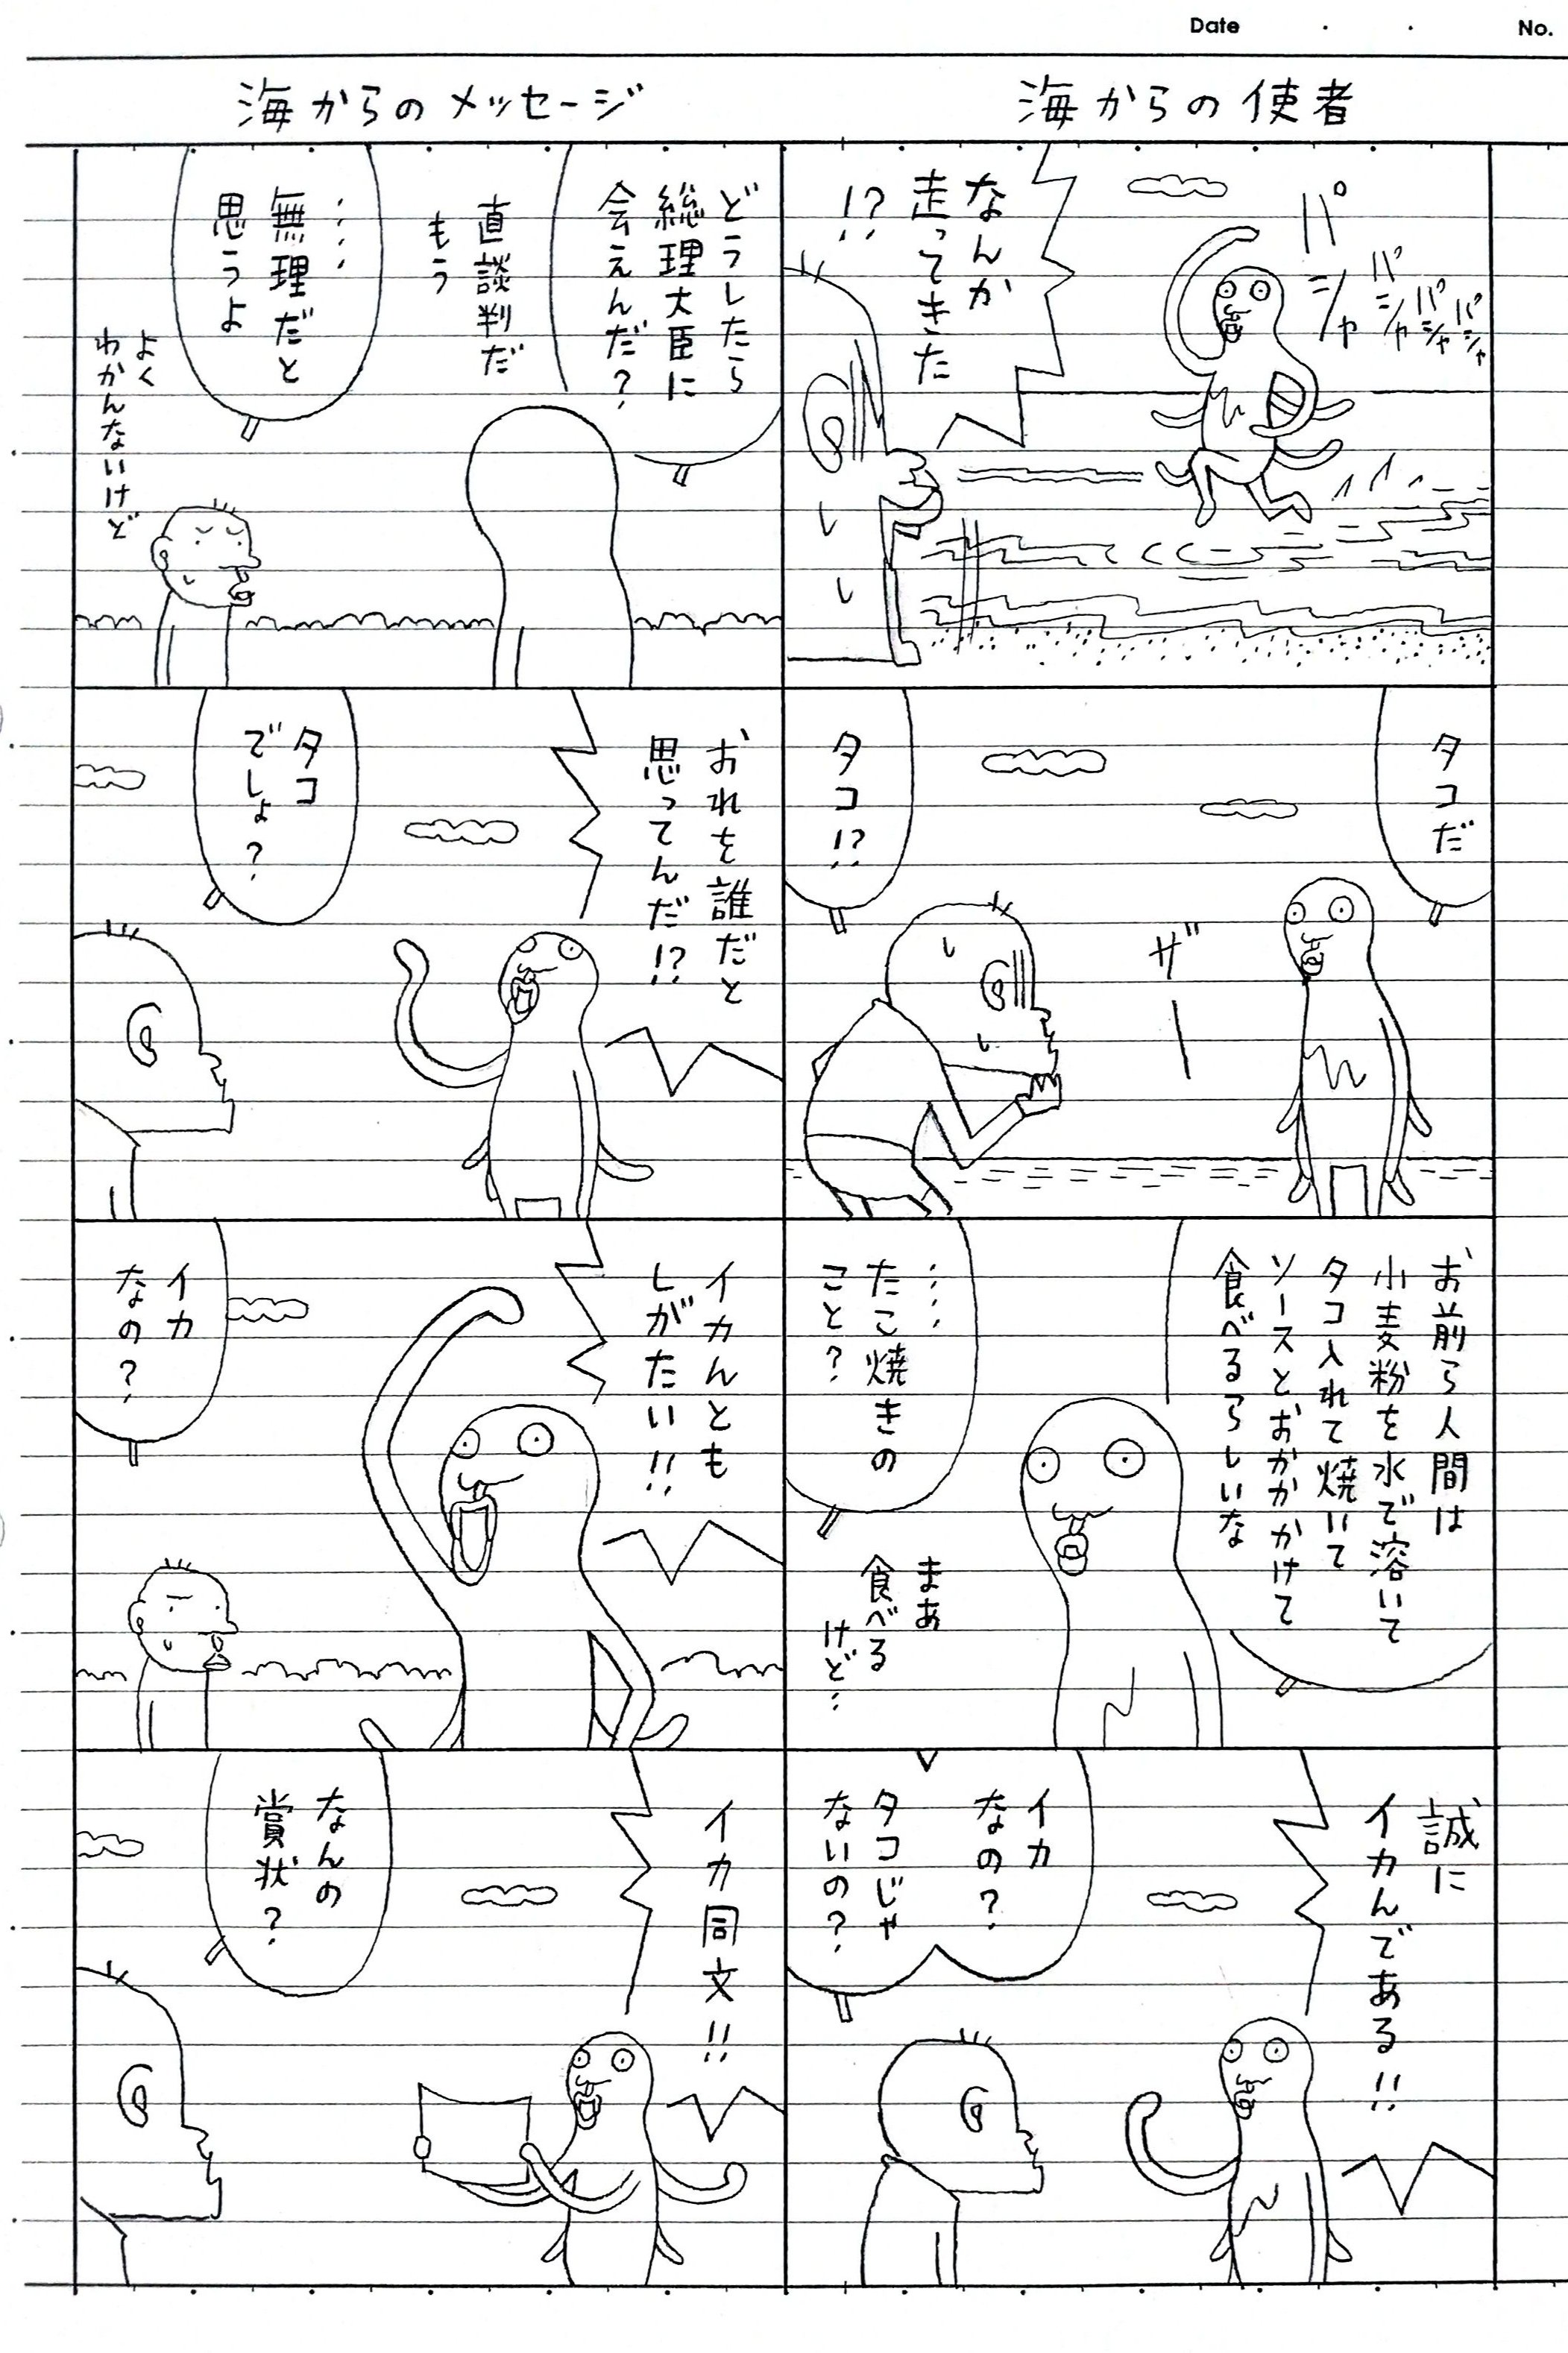 Date
No.
海からの使者
パシャパシャパシャパシャ
なんか
走ってきた
!?
タコだ
ザー
タコ!?
お前ら人間は
小麦粉を水で溶いて
タコ入れて焼いて
ソースとおかかかけて
食べるらしいな
……
たこ焼きの
こと?
まあ
食べる
けど…
誠に
イカんである!!
イカ
なの?
タコじゃ
ないの?
海からのメッセージ
どうしたら
総理大臣に
会えんだ?
直談判だ
もう
……
無理だと
思うよ
よく
わかんないけど
おれを誰だと
思ってんだ!?
タコ
でしょ?
イカんとも
しがたい!!
イカ
なの?
イカ同文!!
なんの
賞状?